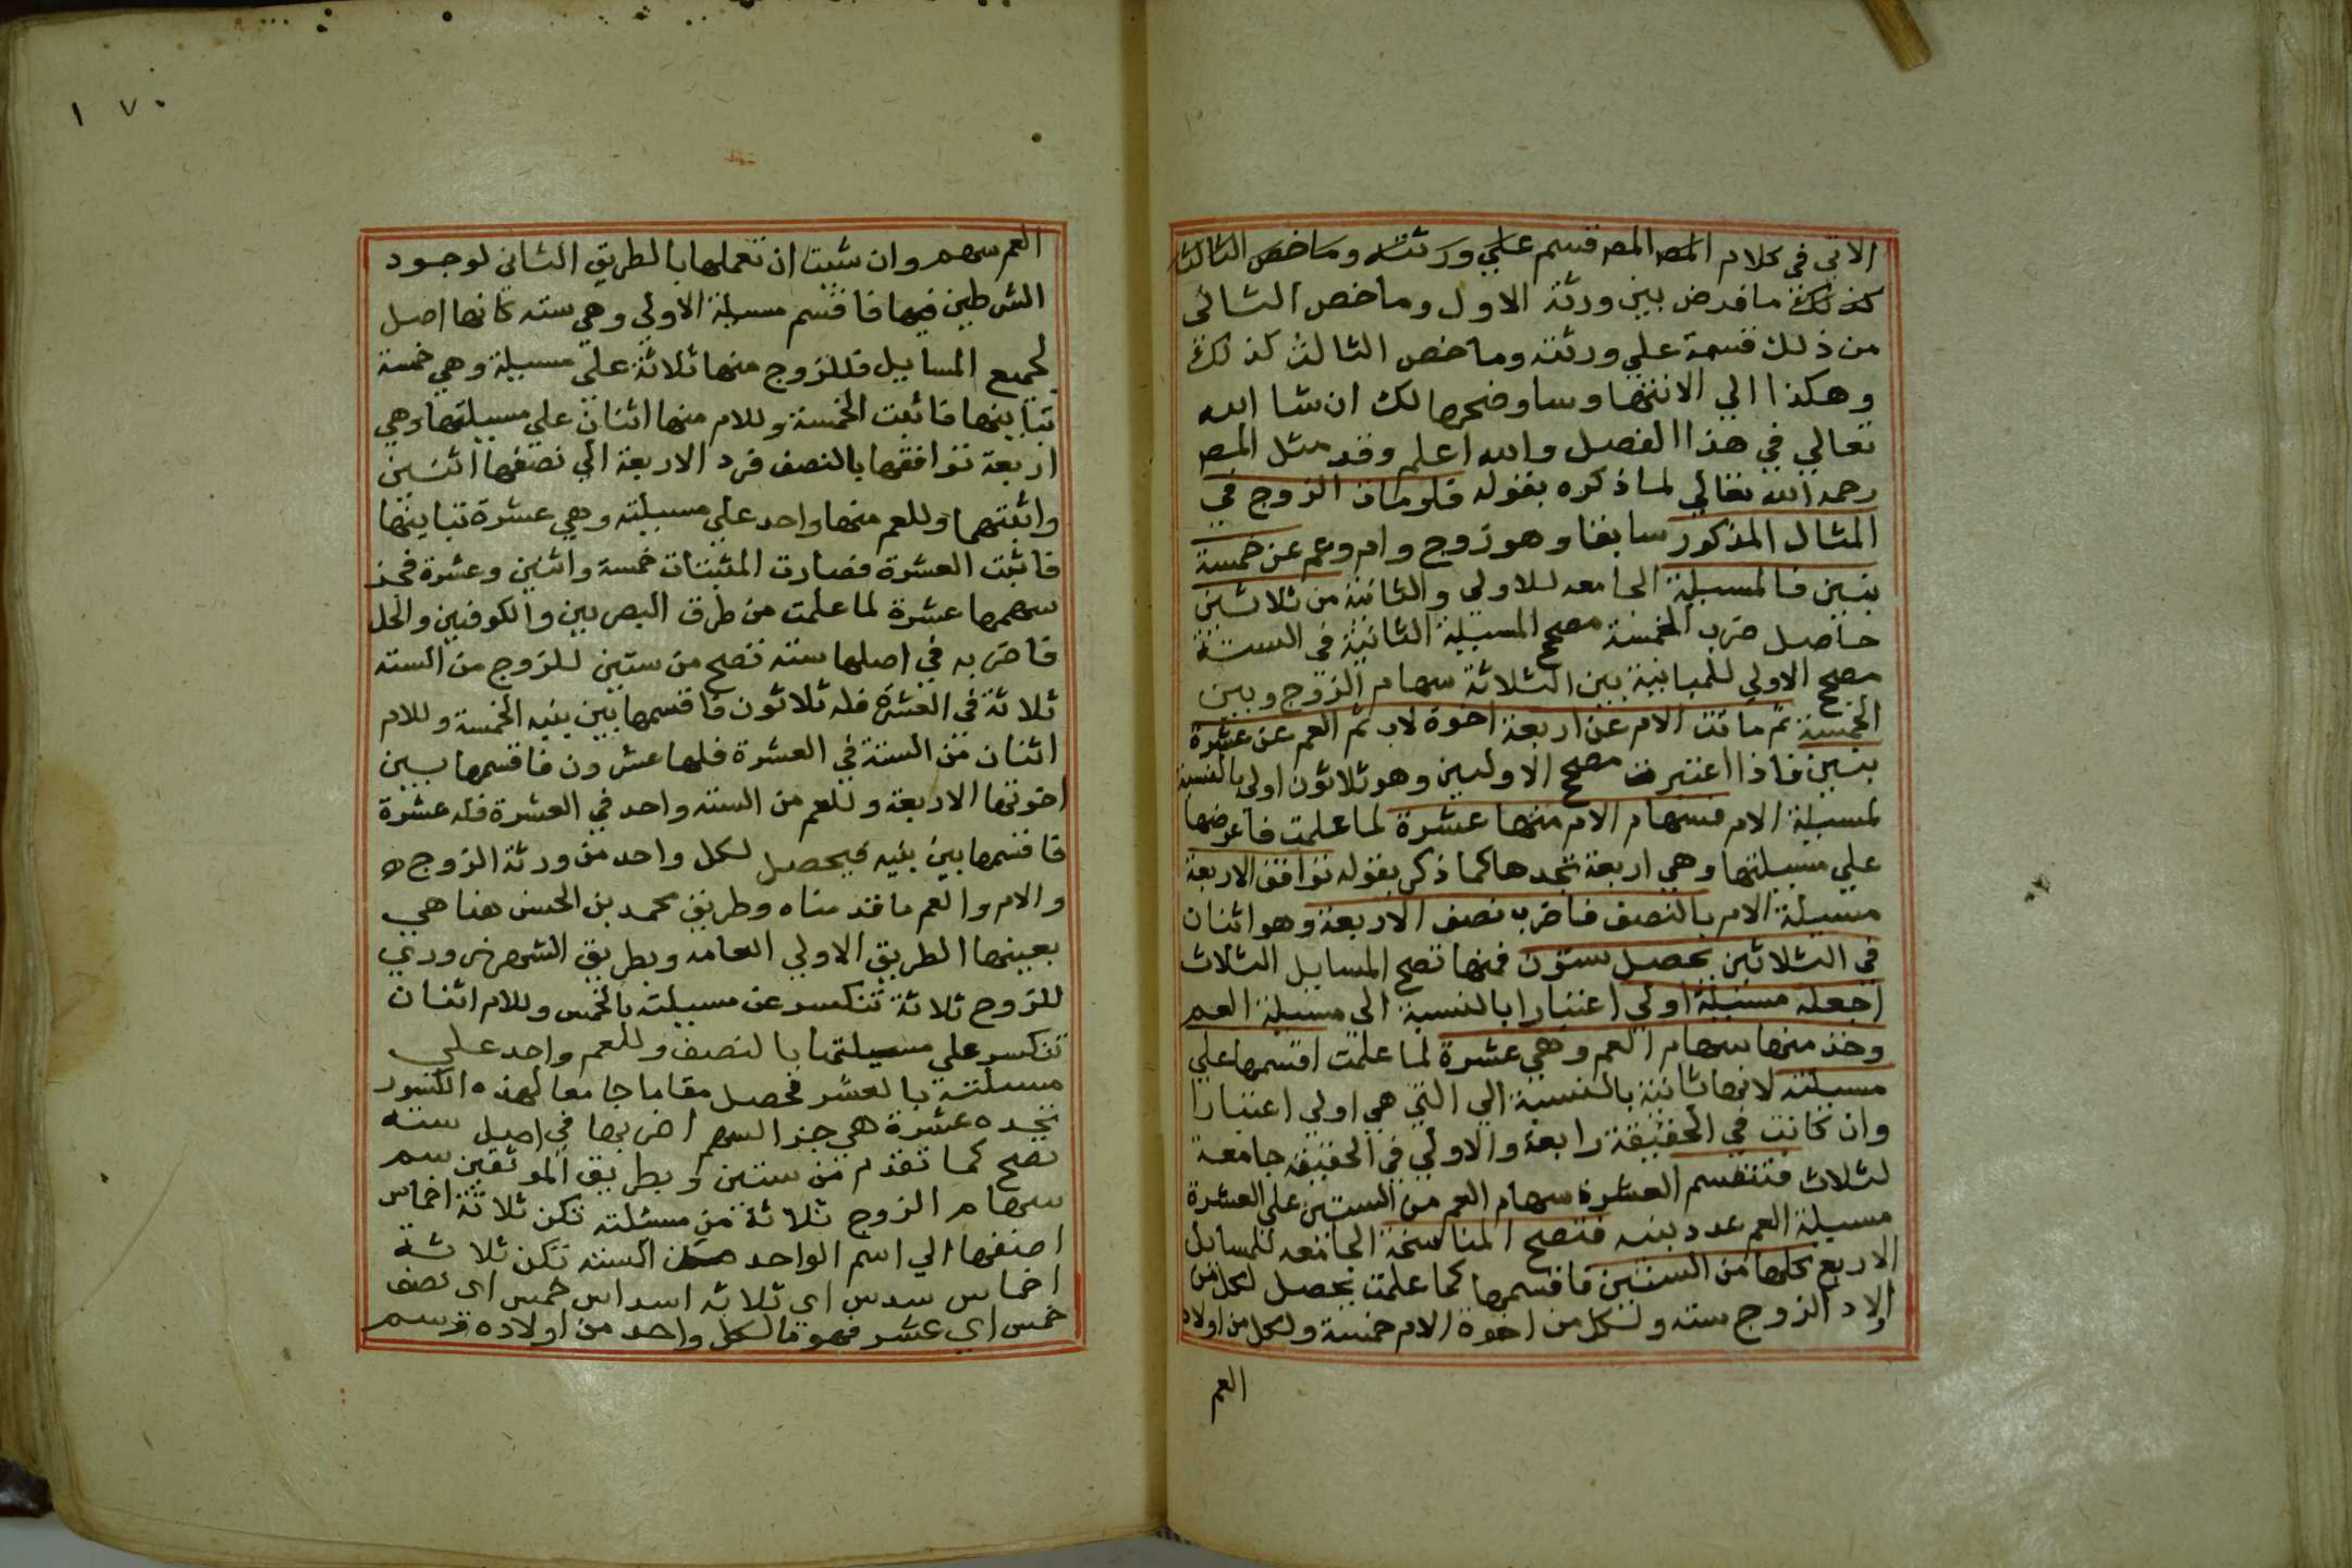 الاتي في كلام المصـ المصـ قسم علي ورثته وما خص الثالث
كذلك ما فرض بين ورثة الاول وما خص الثاني
من ذلك قسمة علي ورثته وما خص الثالث كذلك
وهكذا الي الانتها وساوضحها لك ان شا الله
تعالي في هذا الفصل والله اعلم وقد مثل المصـ
رحمه الله تعالي لما ذكره بقوله فلو مات الزوج في
المثال المذكور سابقا وهو زوج وام وعم عن خمسة
بنين فالمسيلة الجامعه للاولي والثانية من ثلاثين
حاصل ضرب الخمسة مصحح المسيلة الثانية في الستة
مصحح الاولي للمباينة بين الثلاثة سهام الزوج وبين
الخمسة ثم ماتت الام عن اربعة اخوة لاب ثم العم عن عشرة
بنين فاذا اعتبرت مصحح الاوليين وهو ثلاثون اولي بالنسبة
لمسيلة الام فسهام الام منها عشرة لما علمت فاعرضها
علي مسيلتها وهي اربعة تجدها كما ذكر بقوله توافق الاربعة
مسيلة الام بالنصف فاضرب نصف الاربعة وهو اثنان
في الثلاثين يحصل ستون فمنها تصح المسايل الثلاث
اجعله مسئلة اولي اعتبارا بالنسبة الي مسيلة العم
وخذ منها سهام العم وهي عشرة لما علمت اقسمها علي
مسيلته لانها ثانية بالنسبة الي التي هي اولي اعتبارا
وان كانت في الحقيقة رابعة والاولي في الحقيقة جامعة
لثلاث فتنقسم العشرة سهام العم من الستين علي العشرة
مسيلة العم عدد بنيه فتصح المناسخة الجامعه للمسايل
الاربع كلها من الستين فاقسمها كما علمت يحصل لكل من
اولاد الزوج سته ولكل من اخوة الام خمسة ولكل من اولاد
العم
١٧٠
العم سهم وان شيت ان تعملها بالطريق الثاني لوجود
الشرطين فيها فاقسم مسيلة الاولي وهي سته كانها اصل
لجميع المسايل فللزوج منها ثلاثة علي مسيلة وهي خمسة
تباينها فاثبت الخمسة وللام منها اثنان علي مسيلتها وهي
اربعة توافقها بالنصف فرد الاربعة الي نصفها اثنين
واثبتهما وللعم منها واحد علي مسيلته وهي عشرة تباينها
فاثبت العشرة فصارت المثبتات خمسة واثنين وعشرة فجز
سهمها عشرة لما علمت من طرق البصريين والكوفيين والحل
فاضربه في اصلها سته تصح من ستين للزوج من السته
ثلاثة في العشرة فله ثلاثون فاقسمها بين بنيه الخمسة وللام
اثنان من الستة في العشرة فلها عشرون فاقسمها بين
اخوتها الاربعة وللعم من السته واحد في العشرة فله عشرة
فاقسمها بين بنيه فيحصل لكل واحد من ورثة الزوج
والام والعم ما قدمناه وطريق محمد بن الحسن هنا هي
بعينها الطريق الاولي العامه وبطريق الشهرزوري
للزوج ثلاثة تنكسر عن مسيلته بالخمس وللام اثنان
تنكسر علي مسيلتها بالنصف وللعم واحد علي
مسيلته بالعشر فحصل مقاما جامعا لهذه الكسور
تجده عشرة هي جز السهم اضربها في اصل سته
تصح كما تقدم من ستين وبطريق الموثقين سم
سهام الزوج ثلاثة من مسئلته تكن ثلاثة اخماس
اضفها الي اسم الواحد من السته تكن ثلاثة
اخماس سدس اي ثلاثه اسداس خمس اي نصف
خمس اي عشر فهو ما لكل واحد من اولاده وسم